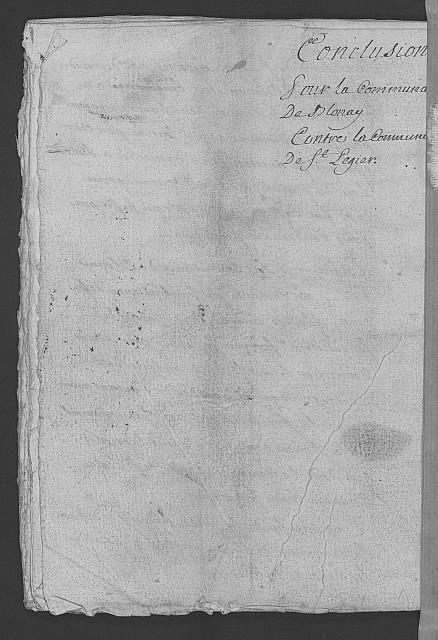 Conclusion
Pour la Commune
De Blonay
Contre la Commune
De St Legier.